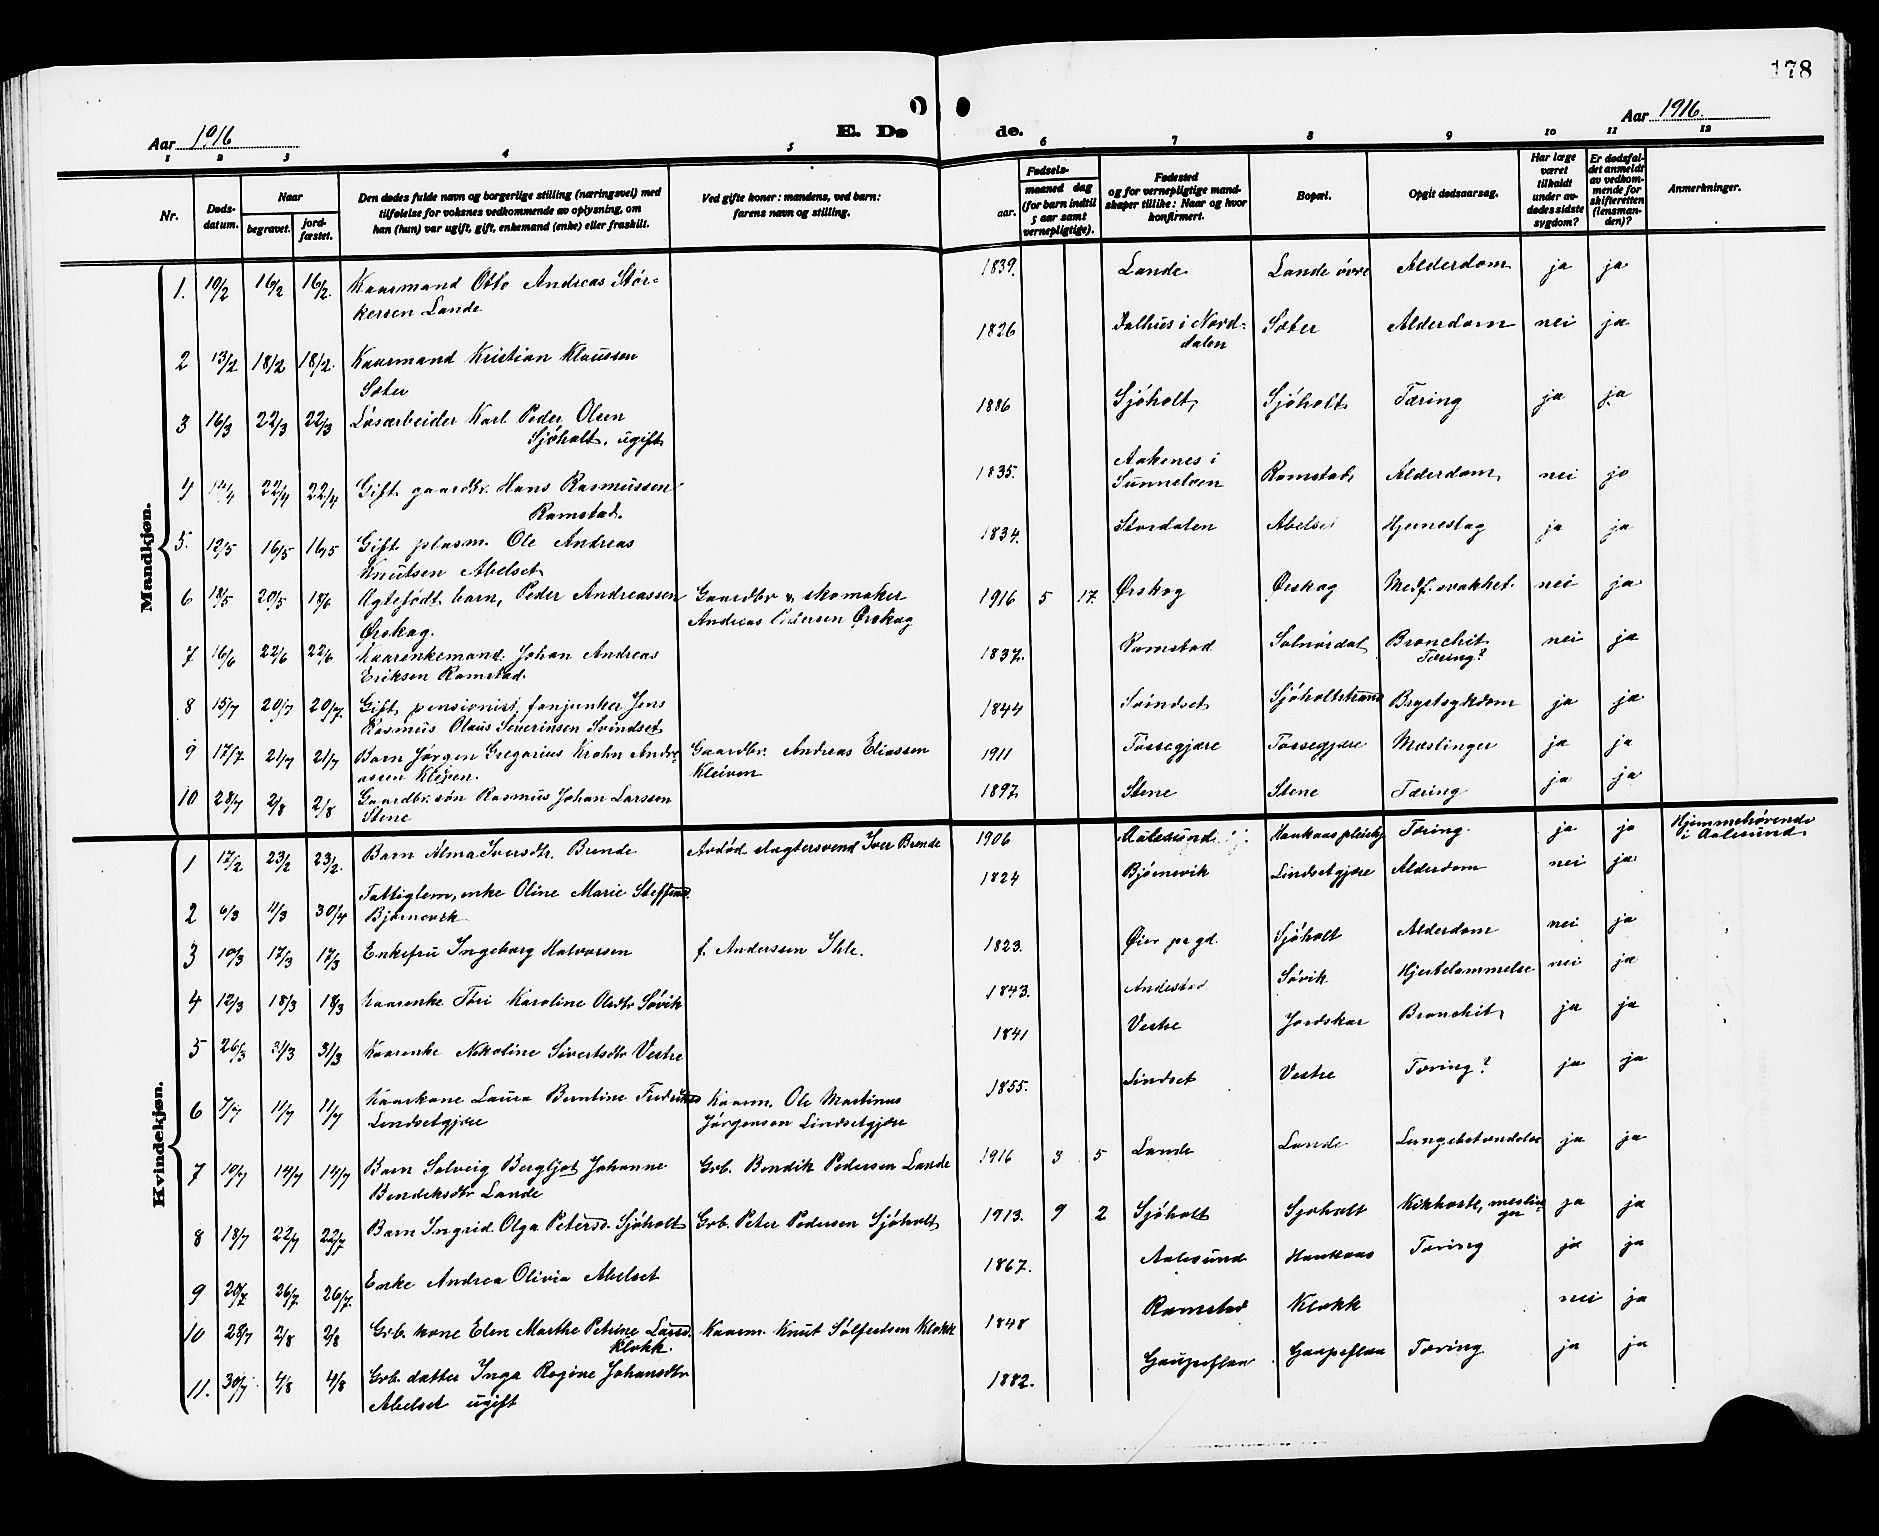 178
Aar 1916
E. Døde.
Aar 1916.
1 2 3 4 5 6 7 8 9 10 11 12
Nr.
Dødsdatum.
Naar
begravet.
jordfæstet.
Den dødes fulde navn og borgerlige stilling (næringsvei) med
tilføielse for voksnes vedkommende av oplysning, om
han (hun) var ugift, gift, enkemand (enke) eller fraskilt.
Ved gifte koner: mandens, ved barn:
farens navn og stilling.
Fødsels-
aar.
maaned dag
(for barn indtil
5 aar samt
vernepligtige).
Fødested
og for vernepligtige mand-
skaper tillike: Naar og hvor
konfirmert.
Bopæl.
Opgit dødsaarsag.
Har læge
været
tilkaldt
under av-
dødes sidste
sygdom?
Er dødsfal-
det anmeldt
av vedkom-
mende for
skifteretten
(lensman-
den)?
Anmerkninger.
Mandkjøn.
1. 10/2 16/2 16/2. Kaarmand Otto Andreas Stør-
kersen Lande 1839. Lande Lande øvre Alderdom ja ja
2 13/2 18/2 18/2. Kaarmand Kristian Klaussen
Sæter 1826 Dalhus i Nord-
dalen Sæter Alderdom nei ja
3 16/3 22/3 22/3 Løsarbeider Karl Peder Olsen
Sjøholt, ugift 1886 Sjøholt Sjøholt Tæring ja ja
4 14/4 22/4 22/4 Gift gaardbr. Hans Rasmussen
Ramstad. 1835. Aakenes i
Sunnelven Ramstad Alderdom nei ja
5. 12/5 16/5 16/5 Gift plasm. Ole Andreas
Knutsen Abelset 1834. Stordalen Abelset Hjerneslag ja ja
6 18/5 20/5 18/6 Ægtefødt barn, Peder Andreassen
Ørskog. Gaardbr & skomaker
Andreas Pedersen Ørskog 1916 5 17. Ørskog Ørskog Medf. svakhet nei ja
7 16/6 22/6 22/6 Kaarenkemand Johan Andreas
Eriksen Ramstad. 1837. Ramstad Solnørdal Bronchit
Tæring? nei ja
8 15/7 20/7 20/7. Gift pensionist, fanjunker Jens
Rasmus Olaus Severinsen Svindset 1844 Svindset Sjøholtstrand Brystsykdom ja ja
9 17/7 21/7 21/7 Barn Jørgen Gregarius Krohn Andre-
assen Kleiven. Gaardbr. Andreas Eliassen
Kleiven 1911 Tossegjære Tossegjære Mæslinger ja ja
10 28/7 2/8 2/8 Gaardbr. søn Rasmus Johan Larssen
Stene 1897. Stene Stene Tæring ja ja
Kvindekjøn.
1 17/2 23/2 23/2. Barn Alma Iversdtr. Brende Avdød slagtersvend Iver Brende 1906 Aalesund Tæring ja ja Hjemmehørende
i Aalesund.
2 6/3 11/3 30/4 Fattiglem, enke Oline Marie
Bjørnevik 1824 Bjørnevik Lindsetgjære Alderdom nei ja
3 10/3 17/3 17/3 Enkefru Ingeborg Halvorsen f. Anderssen Ihle. 1823. Øien pr gd. Sjøholt Alderdom nei ja
4 12/3 18/3 18/3 Kaarenke Tori Karoline Olsdtr Søvik 1843. Andestad Søvik Hjertelammelse nei ja
5 26/3 31/3 31/3 Kaarenke Nikoline Sivertsdtr Vestre 1841 Vestre Jordskar Bronchit ja ja
6 7/7 11/7 11/7 Kaarkone Laura Berntine
Lindsetgjære Kaarm. Ole Martinus
Jørgensen Lindsetgjære 1855. Lindset Vestre Tæring? ja ja
7 10/7 14/7 14/7 Barn Solveig Bergljot Johanne
Bendiksdtr Lande Grb. Bendik Pedersen Lande 1916 3 5 Lande Lande Lungebetændelse ja ja
8 18/7 22/7 22/7 Barn Ingrid Olga Petersd. Sjøholt Grb. Peter Pedersen Sjøholt 1913. 9 2 Sjøholt Sjøholt Kikhoste, meslin-
ger ja ja
9 20/7 26/7 26/7. Enke Andrea Olivia Abelset 1867. Aalesund Haukaas Tæring ja ja
10 28/7 2/8 2/8 Grb. kone Elen Marthe Petrine Larsd.
Klokk. Kaarm. Knut Sølfestsen Klokk 1848 Ramstad Klokk nei ja
11. 30/7. 4/8 4/8 Grb. datter Inga Regine Johansdtr
Abelset ugift 1882. Gaupeflaa Gaupeflaa Tæring ja ja